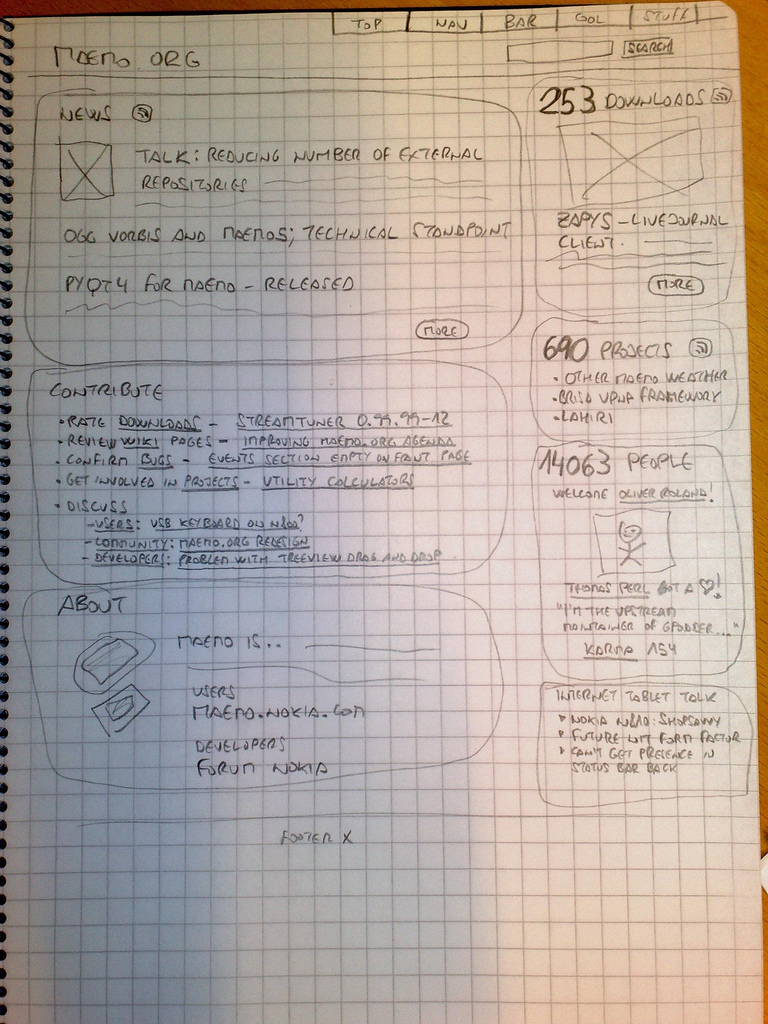 TOP NAV BAR COOL STUFF
MAEMO.ORG
SEARCH
NEWS
TALK: REDUCING NUMBER OF EXTERNAL
REPOSITORIES
OGG VORBIS AND MAEMOS; TECHNICAL STANDPOINT
PYQT4 FOR MAEMO - RELEASED
MORE
CONTRIBUTE
• RATE DOWNLOADS - STREAMTUNER 0.99.99-12
• REVIEW WIKI PAGES - IMPROVING MAEMO.ORG AGENDA
• CONFIRM BUGS - EVENTS SECTION EMPTY ON FRONT PAGE
• GET INVOLVED IN PROJECTS - UTILITY CALCULATORS
• DISCUSS
- USERS: USB KEYBOARD ON N800?
- COMMUNITY: MAEMO.ORG REDESIGN
- DEVELOPERS: PROBLEM WITH TREEVIEW DRAG AND DROP
ABOUT
MAEMO IS..
USERS
MAEMO.NOKIA.COM
DEVELOPERS
FORUM NOKIA
253 DOWNLOADS
ZAPYS - LIVEJOURNAL
CLIENT.
MORE
690 PROJECTS
• OTHER MAEMO WEATHER
• BRISA UPNP FRAMEWORK
• LAHIRI
14063 PEOPLE
WELCOME OLIVER ROLAND!
THOMAS PERL GOT A ♡!
"I'M THE UPSTREAM
MAINTAINER OF GPODDER..."
KARMA 154
INTERNET TABLET TALK
NOKIA N810: SHOPSAVVY
FUTURE NIT FORM FACTOR
CAN'T GET PRESENCE IN
STATUS BAR BACK
FOOTER X